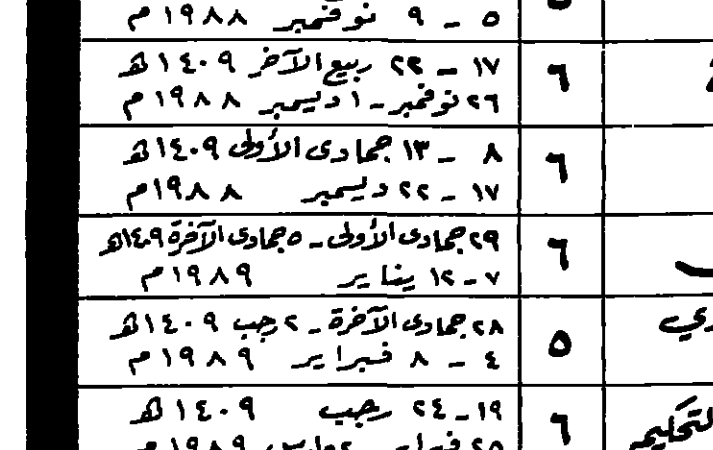 ٥ - ٩ نوفمبر ١٩٨٨م
٦
١٧ - ٢٢ ربيع الآخر ١٤٠٩هـ
٢٦ نوفمبر - ١ ديسمبر ١٩٨٨م
٦
٨ - ١٣ جمادى الأولى ١٤٠٩هـ
١٧ - ٢٢ ديسمبر ١٩٨٨م
٦
٢٩ جمادى الأولى - ٥ جمادى الآخرة ١٤٠٩هـ
٧ - ١٢ يناير ١٩٨٩م
٥
٢٨ جمادى الآخرة - ٢ رجب ١٤٠٩هـ
٤ - ٨ فبراير ١٩٨٩م
التحكيم
٦
١٩ - ٢٤ رجب ١٤٠٩هـ